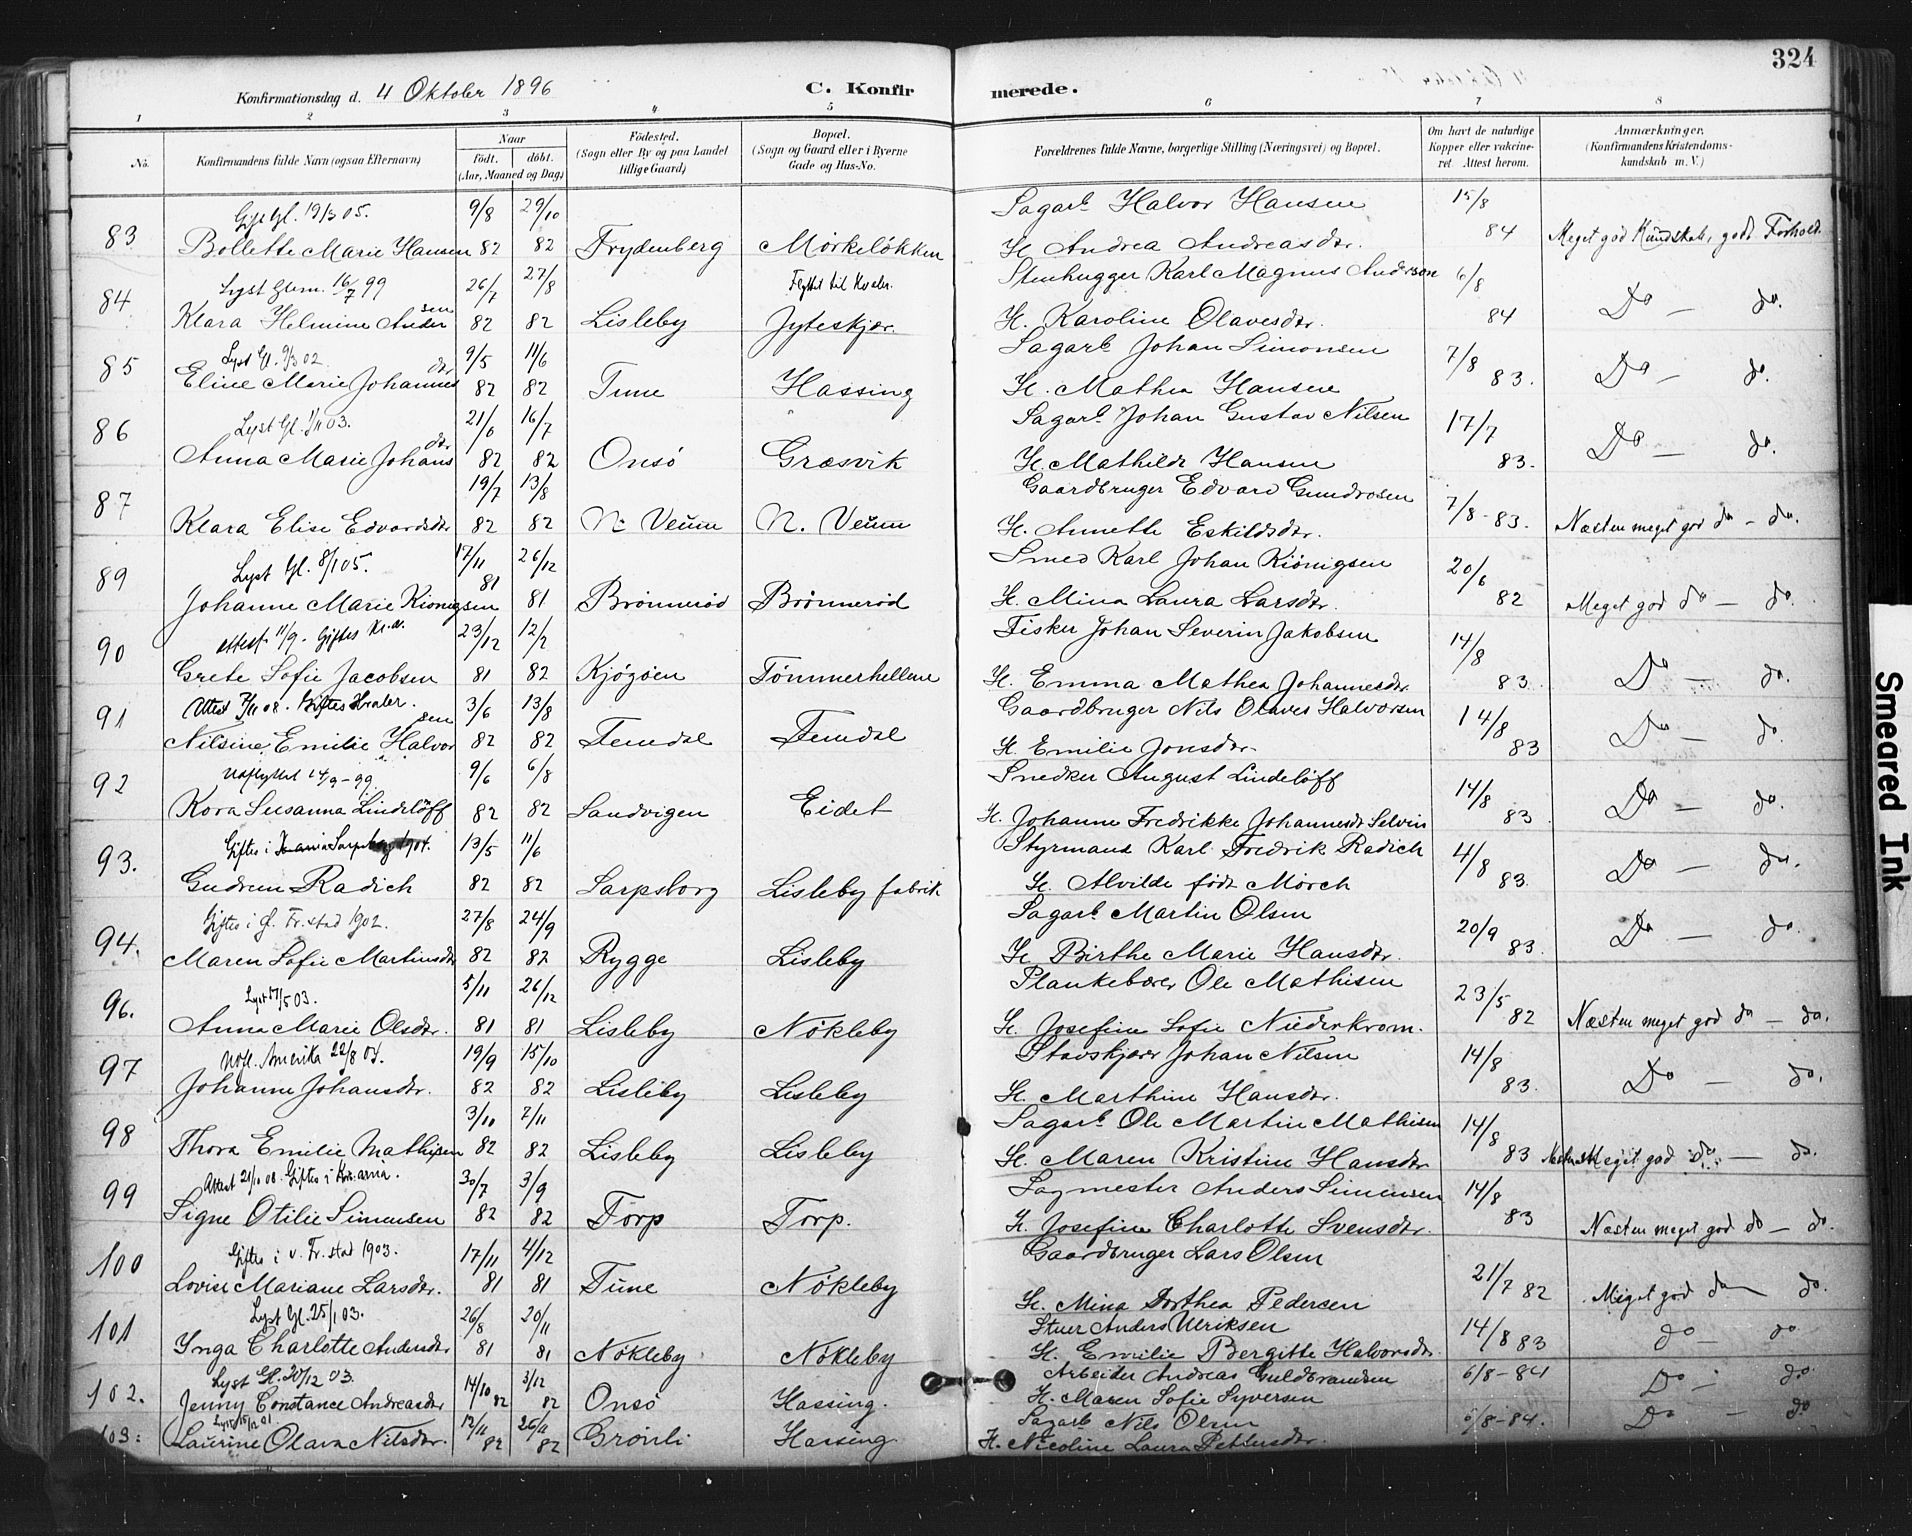 324
Konfirmationsdag d. 4 Oktober 1896 C. Konfir merede.
1 2 3 4 5 6 7 8
No. Konfirmandens fulde Navn (ogsaa Efternavn) Naar født. døbt. (Aar, Maaned og Dag) Fødested. (Sogn eller By og paa Landet tillige Gaard) Bopæl. (Sogn og Gaard eller i Byerne Gade og Hus-No. Forældrenes fulde Navne, borgerlige Stilling (Næringsvei) og Bopæl. Om havt de naturlige Kopper eller vakcineret. Attest herom. Anmærkninger. (Konfirmandens Kristendomskundskab m. V.)
19/3 05. 9/8 29/10 Sagarb. Halvor Hansen 15/8
83 Bollette Marie Hansen 82 82 Frydenberg Mørkeløkken H. Andrea Andreasdtr. 84 Meget god Kundskab, godt Forhold
Lyst Glem. 16/7 99 26/7 27/8 Flyttet til Hvaler. Stenhugger Karl Magnus Anderson 6/8
84 Klara Helmine Andersen 82 82 Lisleby Jyteskjær. H. Karoline Olavesdtr. 84 Do — do.
Lyst Gl. 9/3 02 9/5 11/6 Sagarb. Johan Simonsen 7/8
85 Eline Marie Johannesdtr 82 82 Tune Hassing H. Mathea Hansen 83. Do — do.
Lyst Gl. 1/11 03. 21/6 16/7 Sagarb. Johan Gustav Nilsen 17/7
86 Anna Marie Johansdtr 82 82 Onsö Græsvik H. Mathilde Hansen 83. Do — do.
19/7 13/8 Gaardbruger Edvard Gundrosen
87 Klara Elise Edvardsdtr 82 82 N. Veum N. Veum H. Annette Eskildsdtr. 7/8-83. Næsten meget god do — do.
Lyst Gl. 8/1 05. 17/11 81 26/12 Smed Karl Johan Kiönigsen 20/6
89 Johanne Marie Kionigsen 81 Brönnerød Brönneröd H. Mina Laura Larsdtr. 82 Meget god do — do.
attest 11/9. Giftes Kr.a. 23/12 12/2 Fisker Johan Severin Jakobsen 14/8
90 Grete Sofie Jacobsen 81 82 Kjøgöen Tømmerhellene H. Emma Mathea Johannesdtr. 83. Do — do.
Attest 7/11 08. Giftes Hvaler. 3/6 13/8 Gaardbruger Nils Olaves Halvorsen 14/8
91 Nilsine Emilie Halvorsen 82 82 Femdal Femdal H. Emilie Jonsdtr. 83 Do — do
Udflyttet 14/9-99 9/6 6/8 Snedker August Lindeløff 14/8
92 Kora Susanna Lindeløff 82 82 Sandvigen Eidet H. Johanne Fredrikke Johannesdt Selvin 83 Do — do.
Giftes i Sarpsborg 1904. 13/5 11/6 Styrmand Karl Fredrik Radich 4/8
93. Gudrun Radich 82 82 Sarpsborg Lisleby fabrik H. Alvilde født Mörch 83. Do — do.
Giftes i Gl. Fr.stad 1902. 27/8 24/9 Sagarb. Martin Olsen 20/9
94. Maren Sofie Martinsdtr 82 82 Rygge Lisleby H. Birthe Marie Hansdtr. 83. Do — do.
Lyst 17/5 03. 5/11 26/12 Plankebærer Ole Mathisen 23/5
96. Anna Marie Olsdtr. 81 81 Lisleby Nökleby H. Josefine Sofie Niederkrom. 82 Næsten meget god do — do.
Udfl. Amerika 22/8 04. 19/9 15/10 Stavskjærer Johan Nilsen 14/8
97 Johanne Johansdtr. 82 82 Lisleby Lisleby H. Marthine Hansdtr. 83. Do — do.
3/10 7/11 Sagarb. Ole Martin Mathisen 14/8
98 Thora Emilie Mathisen 82 82 Lisleby Lisleby H. Maren Kristine Hansdtr 83 Næsten Meget god do — do.
Attest 21/10 08. Giftes i Kr.ania. 30/7 3/9 Sagmester Anders Simensen 14/8
99 Signe Otilie Simensen 82 82 Torp Torp. H. Josefine Charlotte Svensdtr. 83 Næsten meget god do — do.
Giftes i v. Fr.stad 1903. 17/11 4/12 Gaardbruger Lars Olsen
100 Lovise Mariane Larsdtr. 81 81 Tune Nökleby H. Mina Dorthea Pedersen 21/7 82 Meget god do — do.
Lyst Gl. 25/1 03. 26/8 20/11 Stuer Anders Ulriksen
101 Ynga Charlotte Andersdtr 81 81 Nökleby Nökleby H. Emilie Bergitte Halvorsdtr. 14/8 83 do — do
Lyst Gl. 20/12 03. 14/10 3/12 Arbeider Andreas Guldbrandsen
102. Jenny Constance Andreasdtr 82 82 Onsö Hassing. H. Maren Sofie Syversen 6/8-84 Do — do.
Lyst 15/12 01 12/11 26/11 Sagarb Nils Olsen
103. Laurine Olava Nilsdtr. 82 82 Grönli Hassing H. Nicoline Laura Pettersdtr. 6/8-84. Do — do
Smeared Ink